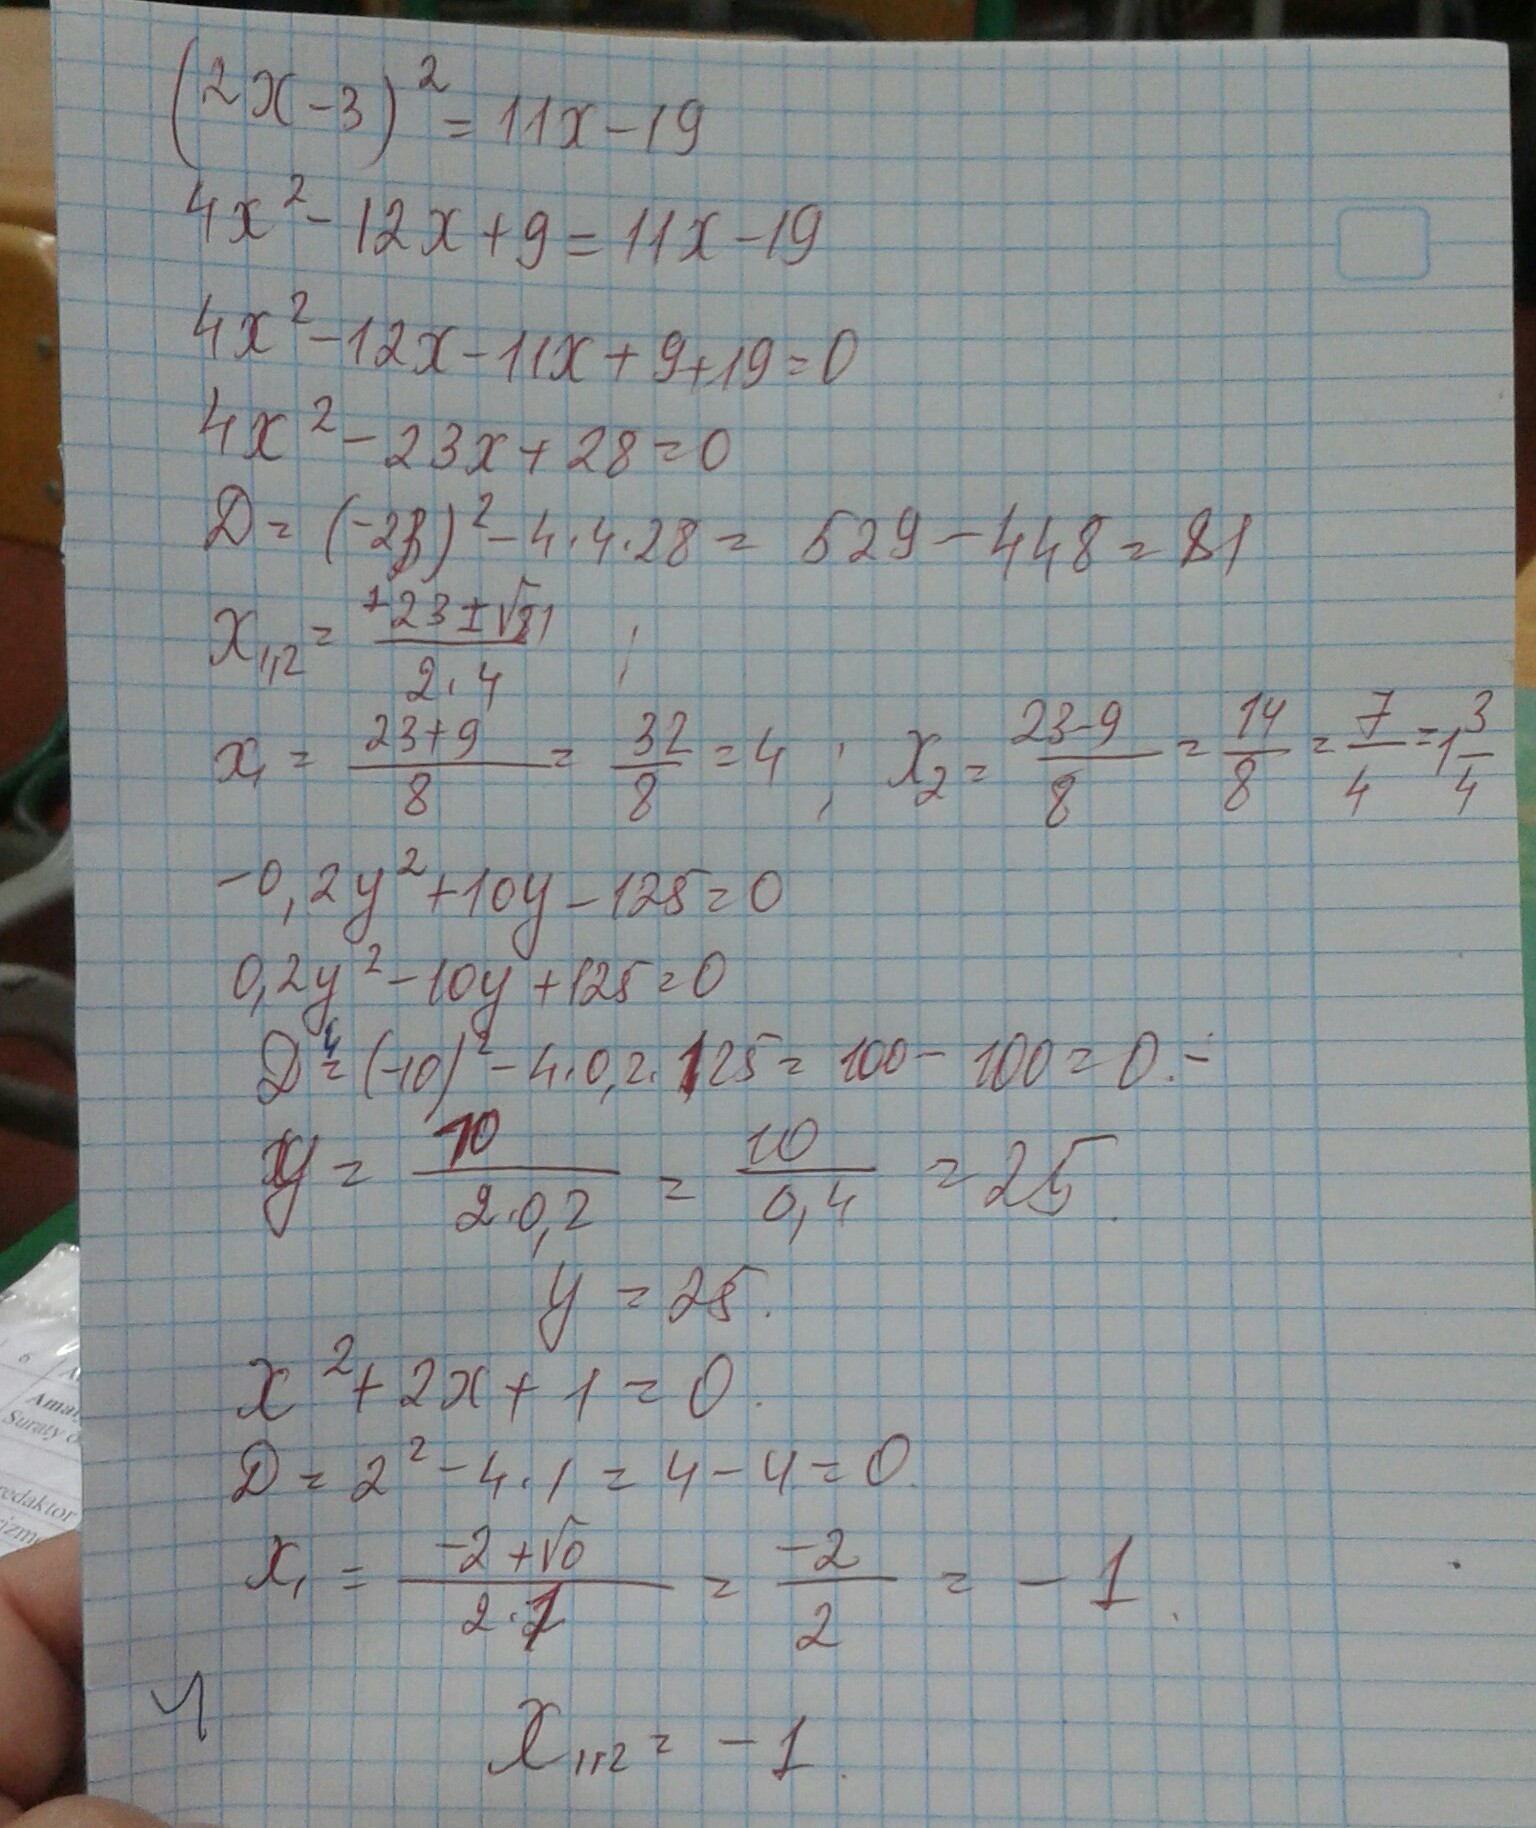 (2x-3)² = 11x-19
4x²-12x+9=11x-19
4x²-12x-11x+9+19=0
4x²-23x+28=0
D=(-23)²-4·4·28= 529-448=81
x₁,₂= +23±√81 / 2·4 ;
x₁= 23+9 / 8 = 32/8 =4 ; x₂= 23-9 / 8 = 14/8 = 7/4 =1 3/4
-0,2y²+10y-125=0
0,2y²-10y+125=0
D=(-10)²-4·0,2·125=100-100=0.-
y= 10 / 2·0,2 = 10 / 0,4 =25.
y=25.
x²+2x+1=0.
D=2²-4·1=4-4=0.
x₁= -2+√0 / 2·1 = -2/2 = -1.
x₁,₂= -1.
6
Suraty
redaktor